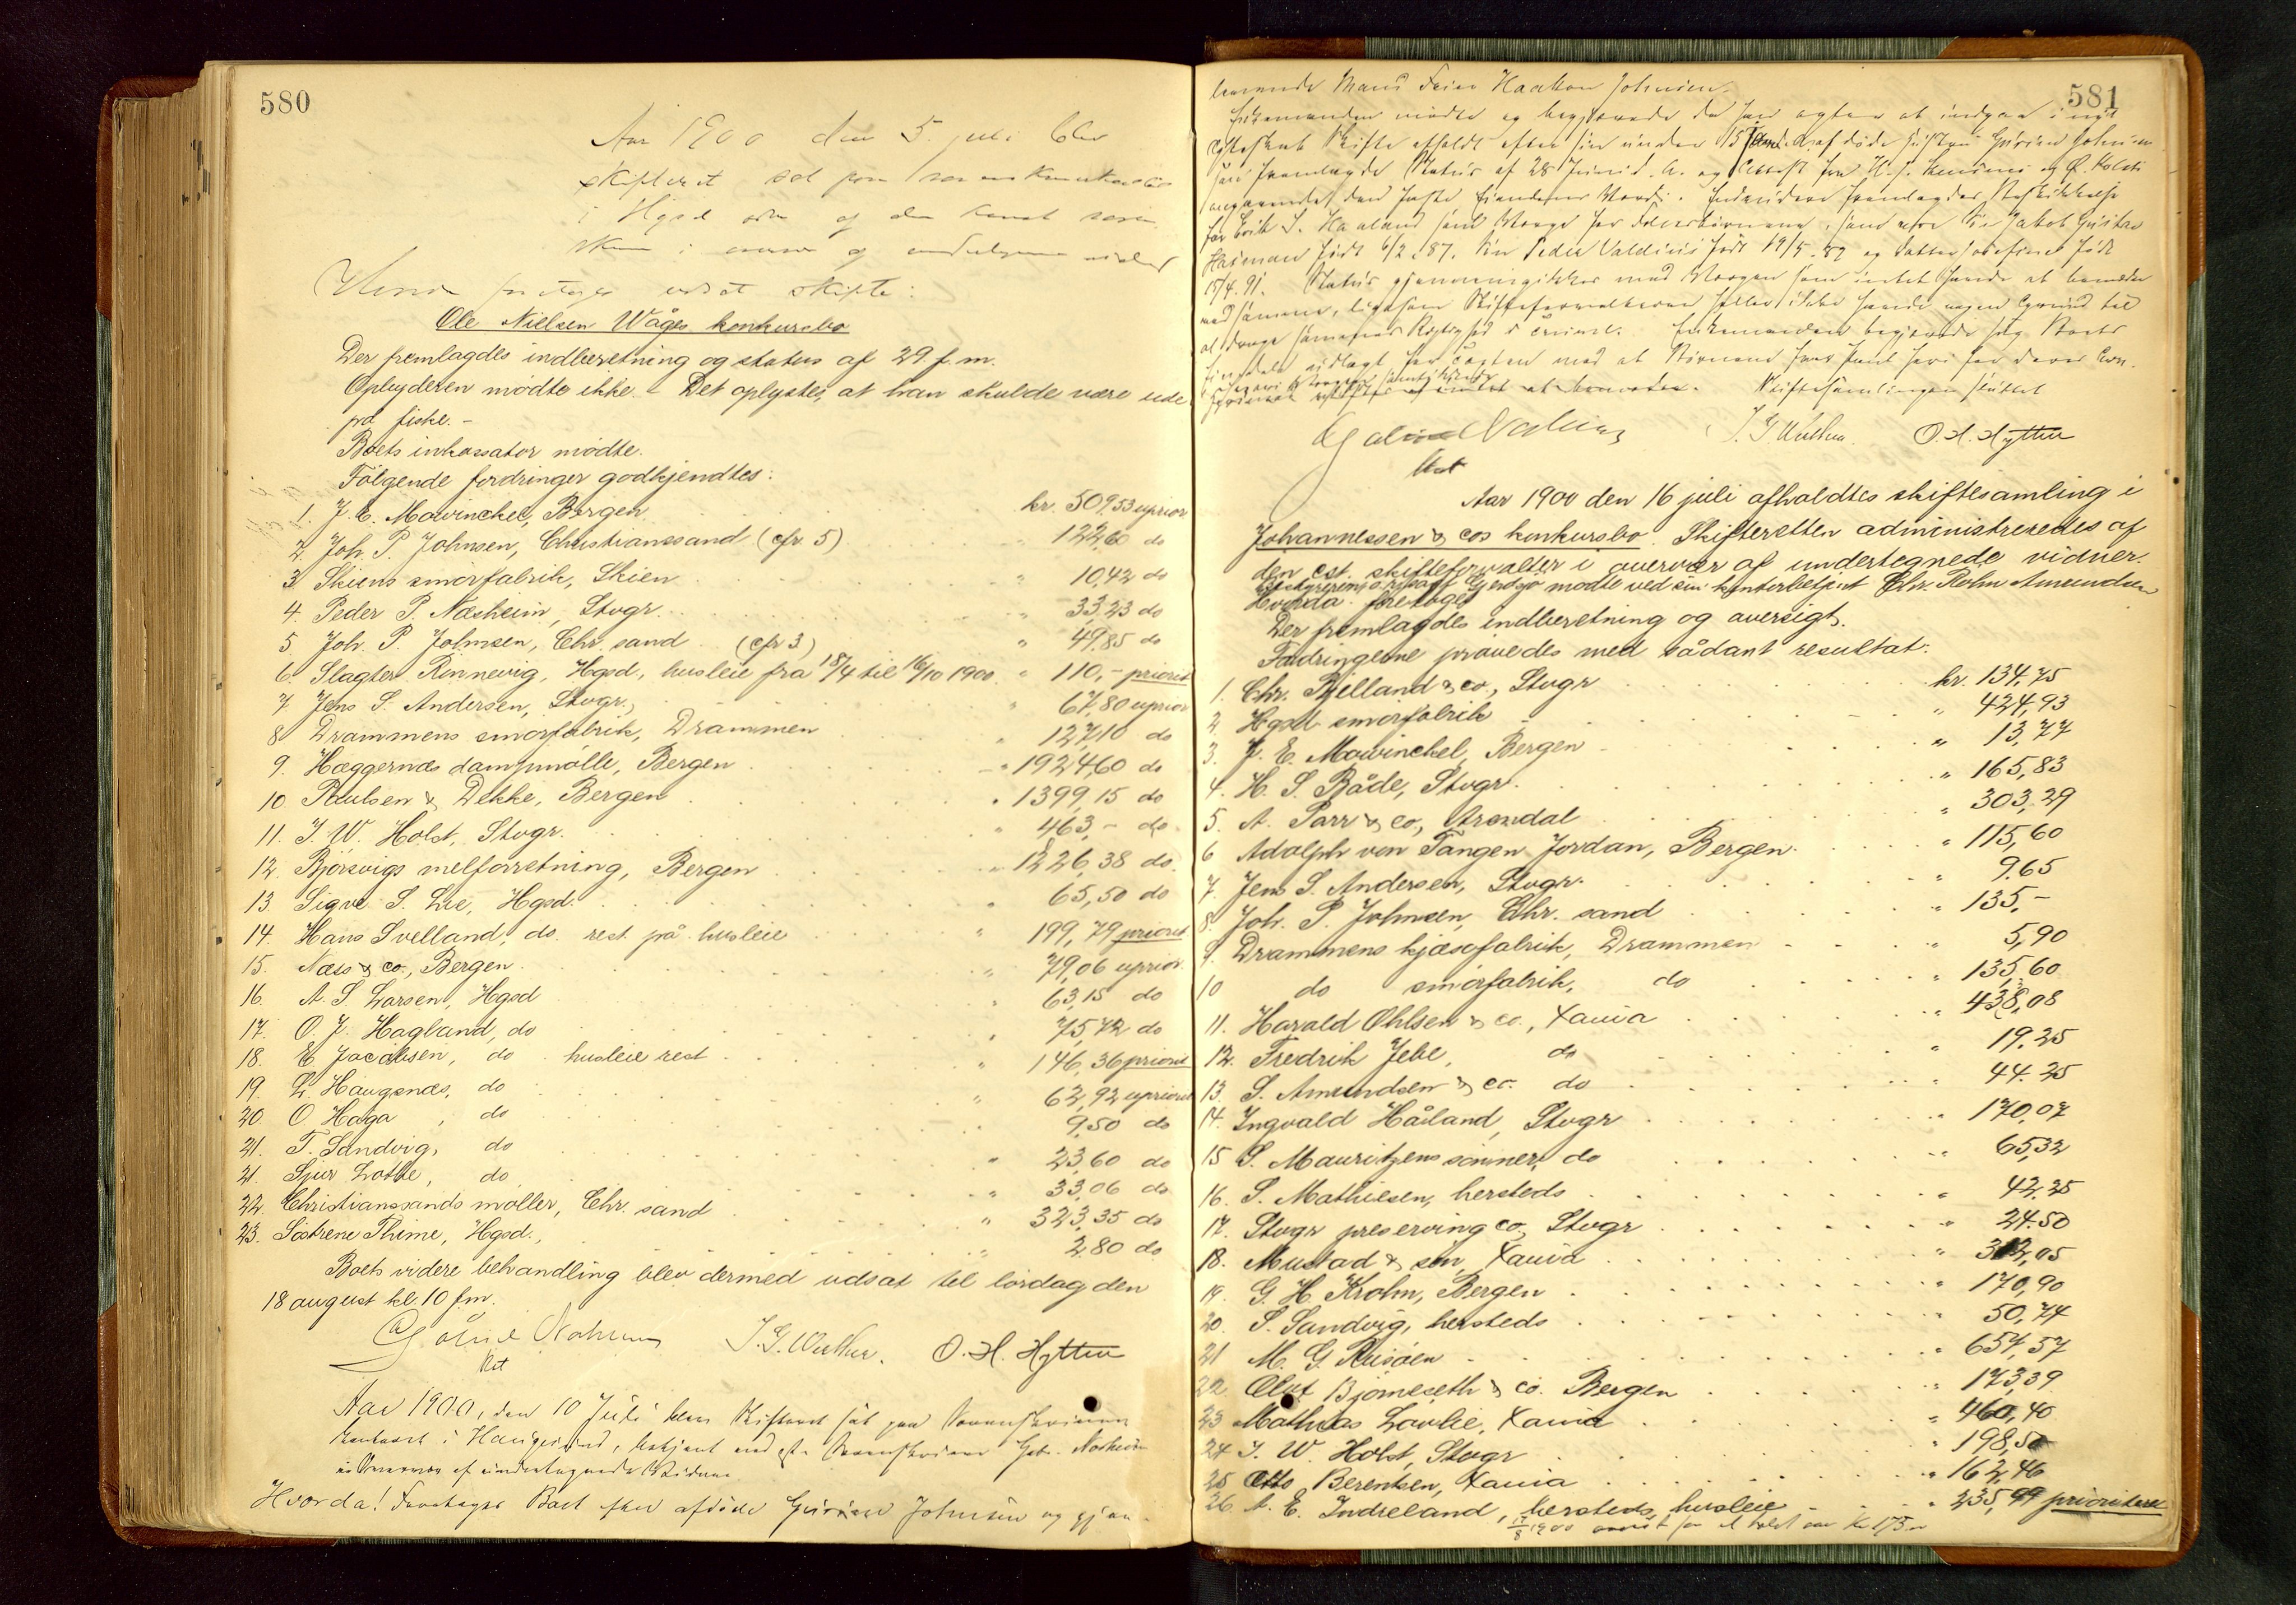 580
Aar 1900 den 5. juli blev
skifteret sat paa sorenskriverkontoret
i Hgsd og den const soren
skriver i overvær og undertegnede vidner
Hvor foretages udsat skifte:
Ole Nielsen Våges konkursbo
Der fremlagdes indberetning og status af 29 f. m.
Opbyderen mødte ikke. - Det oplystes, at han skulde være ude
på fiske. -
Boets inkassator mødte.
Følgende fordringer godkjendtes:
1. J. E. Mowinckel, Bergen kr. 509,53 uprior
2. Joh. P. Johnsen, Christianssand (cfr 5) " 122,60 do
3 Skiens smørfabrik, Skien " 10,42 do
4. Peder P. Næsheim, Stvgr. " 33,23 do
5. Joh. P. Johnsen, Chr. sand (cfr 3) " 49,85 do
6. Slagter Rinnevig, Hgsd, husleie fra 18/4 til 16/10 1900. " 110,- priorit
7 Jens S. Andersen, Stvgr., " 67,80 uprior
8 Drammens smørfabrik, Drammen " 127,10 do
9. Hæggernæs dampmølle, Bergen " 1924,60 do
10. Paulsen & Dekke, Bergen " 1399,15 do
11. J. W. Holst, Stvgr. " 463,- do
12. Bjørsvigs melforretning, Bergen " 1226,38 do
13. Sigve S. Lie, Hgsd. " 65,50 do
14. Hans Svelland, do. rest på husleie " 199,79 priorit
15. Næss & co., Bergen " 79,06 uprior.
16. A. S. Larsen, Hgsd " 63,15 do
17. O. J. Hagland, do " 75,72 do
18. E. Jacobsen, do husleie rest " 146,36 priorit
19. L. Haugsnæs, do " 62,92 upriorit
20. O. Haga, do " 9,50 do
21. T. Sandvig, do " 23,60 do
21. Sjur Lothe, do " 33,06 do
22. Christianssands møller, Chr. sand " 323,35 do
23. Søstrene Thime, Hgsd., " 2,80 do
Boets videre behandling blev dermed udsat til lørdag den
18 august kl. 10 fm.
J. G. Wulher. O. H. Hytten
kst
Aar 1900, den 10 Juli blev Skifteret sat paa Sorenskriver
kontoret i Haugesund, betjent ved cst. Sorenskriver Gab. Naaheim
i Overvær af undertegnede Vidner.
Hvorda! Foretages Boet efter afdøde Gurine Johnsen og gjen-
581
levende Mand Feier Haakon Johnsen.
Enkemanden mødte og begjærede da han agter at indgaa i nyt
Ægteskab Skifte afholdt efter sin under 15 d. A. afdøde Hustru Gurine Johnsen
han fremlagde Status af 28 Juni d. A. og
angaaende den faste Eiendoms Værdi. Endvidere fremlagdes Beskikkelse
for Erik S. Haaland som Værge for Børnene, Søn Jakob Gustav
Hakonsen født 6/2 87. Søn Peder Valdinus født 19/5 89 og Datter Josefine født
15/4. 91. Status gjennemgikkes med Værgen som intet havde at bemærke
ved samme, ligesom Skifteforvalteren heller ikke havde nogen Grund til
at drage sammes Rigtighed i Tvivl. Enkemanden begjærede sig Boets
Eiendele udlagt
Skiftesamlingen sluttet
J. G. Wulher. O. H. Hytten
kst
Aar 1900 den 16 juli afholdtes skiftesamling i
Johannessen & cos konkursbo. Skifteretten administreredes af
den cst. skifteforvalter i overvær af undertegnede vidner.
mødte ved sin kontorbetjent Chr. Holm Amundsen
Hvorda foretoges
Der fremlagdes indberetning og oversigt.
Fordringerne prøvedes med sådant resultat:
1. Chr. Bjelland & co., Stvgr kr. 134,75
2. Hgsd smørfabrik " 424,93
3. J. E. Mowinckel, Bergen " 13,77
4. H. S. Både, Stvgr. " 165,83
5. A. Parr & co, Arendal " 303,29
6 Adolph von Tangen Jordan, Bergen. " 115,60
7. Jens S. Andersen, Stvgr. " 9,65
8. Joh. P. Johnsen, Chr. sand " 135,-
9. Drammens kjæsefabrik, Drammen " 5,90
10 do smørfabrik, do " 135,60
11. Harald Ohlsen & co., Xania " 438,08
12. Fredrik Jebe, do " 19.25
13. S. Amundsen & co. do " 44.25
14. Ingvald Håland, Stvgr " 170,07
15 S. Mauritzens sønner, do " 65,32
16. S. Mathiesen, hersteds " 42,25
17. Stvgr preserving co, Stvgr " 24.50
18. Mustad & søn, Xania " 312,05
19. G. H. Krohn, Bergen " 170,90
20. S. Sandvig, hersteds " 50,74
21 M. G. Risøen " 654,57
22 Oluf Bjørneseth & co. Bergen " 173,39
23 Mathias Løvlie, Xania " 460,40
24 J. W. Holst, Stvgr " 198,50
25 Otto Berentsen, Xania " 162,46
26. A. E. Indreland, hersteds, husleie " 235,99 prioriteret
17/8 1900 for et halvt aar Kr 175 -